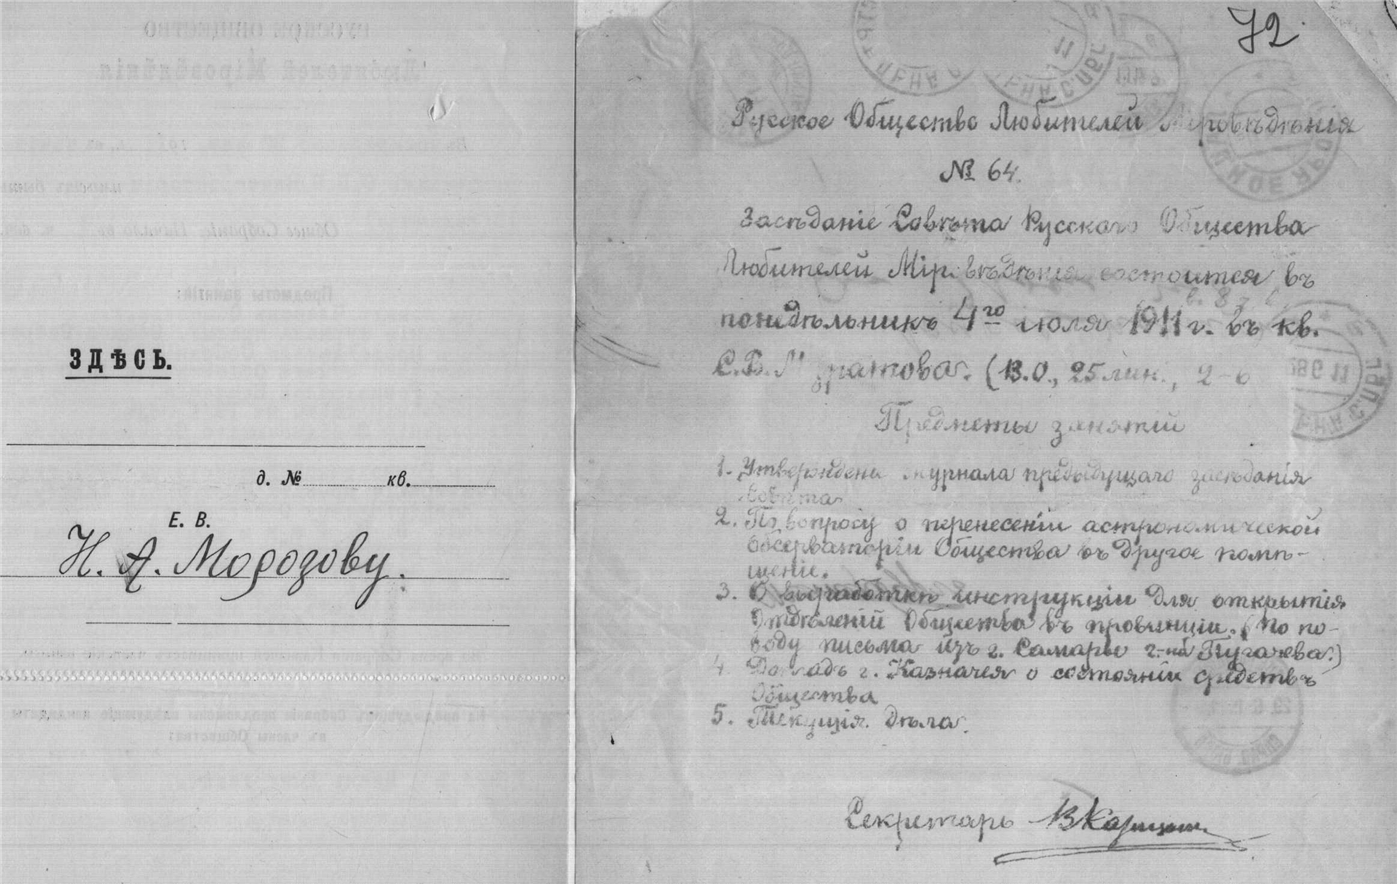 ЗДѢСЬ.
д. № кв.
Е. В.
Н. А. Морозову.
72
Русское Общество Любителей Міровѣдѣнія
№ 64.
Засѣданіе Совѣта Русскаго Общества
Любителей Міровѣдѣнія состоится въ
понедѣльникъ 4го іюля 1911 г. въ кв.
С.В. Муратова. (В.О., 25 лин., 2-6
Предметы занятій
1. Утвержденіе журнала предыдущаго засѣданія
Совѣта
2. По вопросу о перенесеніи астрономической
обсерваторіи Общества въ другое помѣ-
щеніе.
3. О выработкѣ инструкціи для открытія
Отдѣленій Общества въ провинціи. (По по-
воду письма изъ г. Самары г-на Пугачева.)
4. Докладъ г. Казначея о состояніи средствъ
Общества
5. Текущія дѣла.
Секретарь